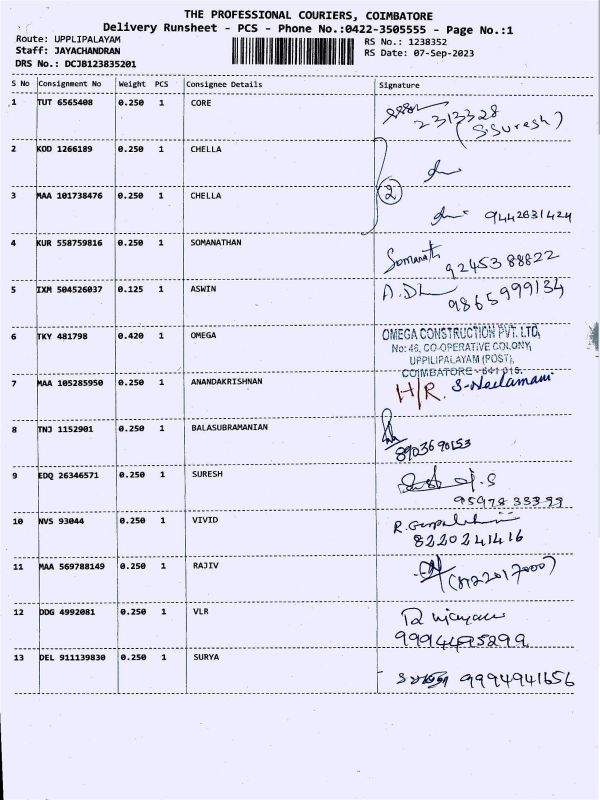 THE PROFESSIONAL COURIERS, COIMBATORE
Delivery Runsheet - PCS - Phone No.:0422-3505555 - Page No.:1
Route: UPPLIPALAYAM
Staff: JAYACHANDRAN
DRS No.: DCJB123835201
RS No.: 1238352
RS Date: 07-Sep-2023
S No Consignment No Weight PCS Consignee Details Signature
1 TUT 6565408 0.250 1 CORE
2313328
(S.Suresh)
2 KOD 1266189 0.250 1 CHELLA
2
3 MAA 101738476 0.250 1 CHELLA
9442631424
4 KUR 558759816 0.250 1 SOMANATHAN
Somanath
9245388822
5 IXM 504526037 0.125 1 ASWIN
9865999134
6 TKY 481798 0.420 1 OMEGA
OMEGA CONSTRUCTION PVT. LTD,
No: 46, CO-OPERATIVE COLONY,
UPPILIPALAYAM (POST),
COIMBATORE - 641 015.
7 MAA 105285950 0.250 1 ANANDAKRISHNAN
H/R. S-Neelamani
8 TNJ 1152901 0.250 1 BALASUBRAMANIAN
8903690153
9 EDQ 26346571 0.250 1 SURESH
10 NVS 93044 0.250 1 VIVID
8220241416
11 MAA 569788149 0.250 1 RAJIV
12 DDG 4992081 0.250 1 VLR
13 DEL 911139830 0.250 1 SURYA
9994941656